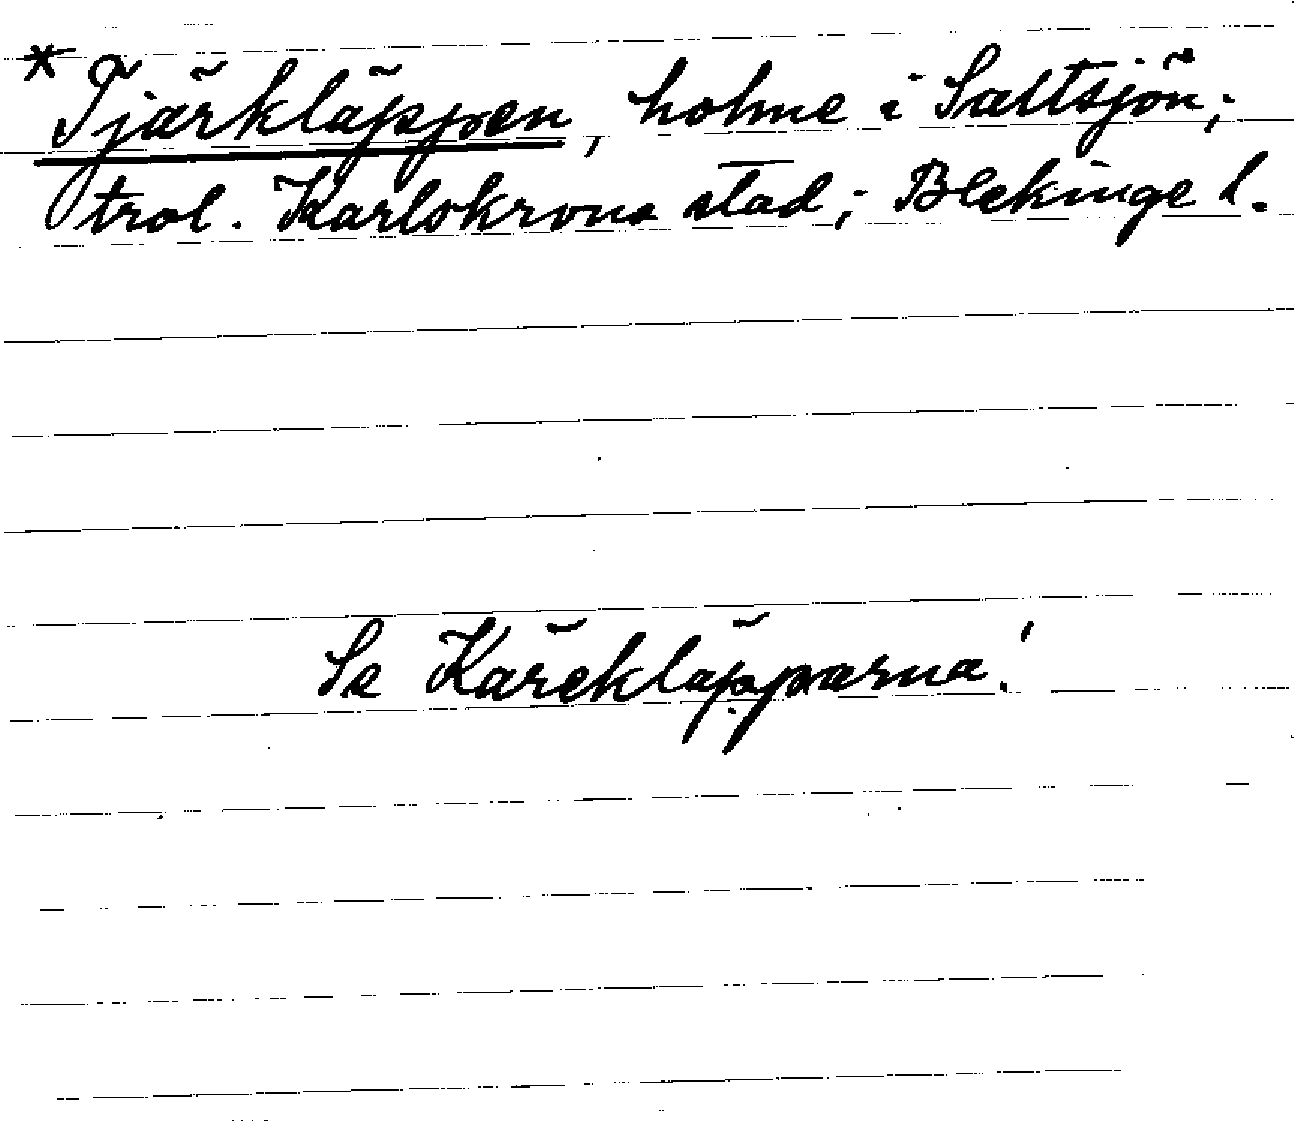 * Tjärkläppen, holme i Saltsjön;
trol. Karlskrona stad; Blekinge l.
Se Kärekläpparna!